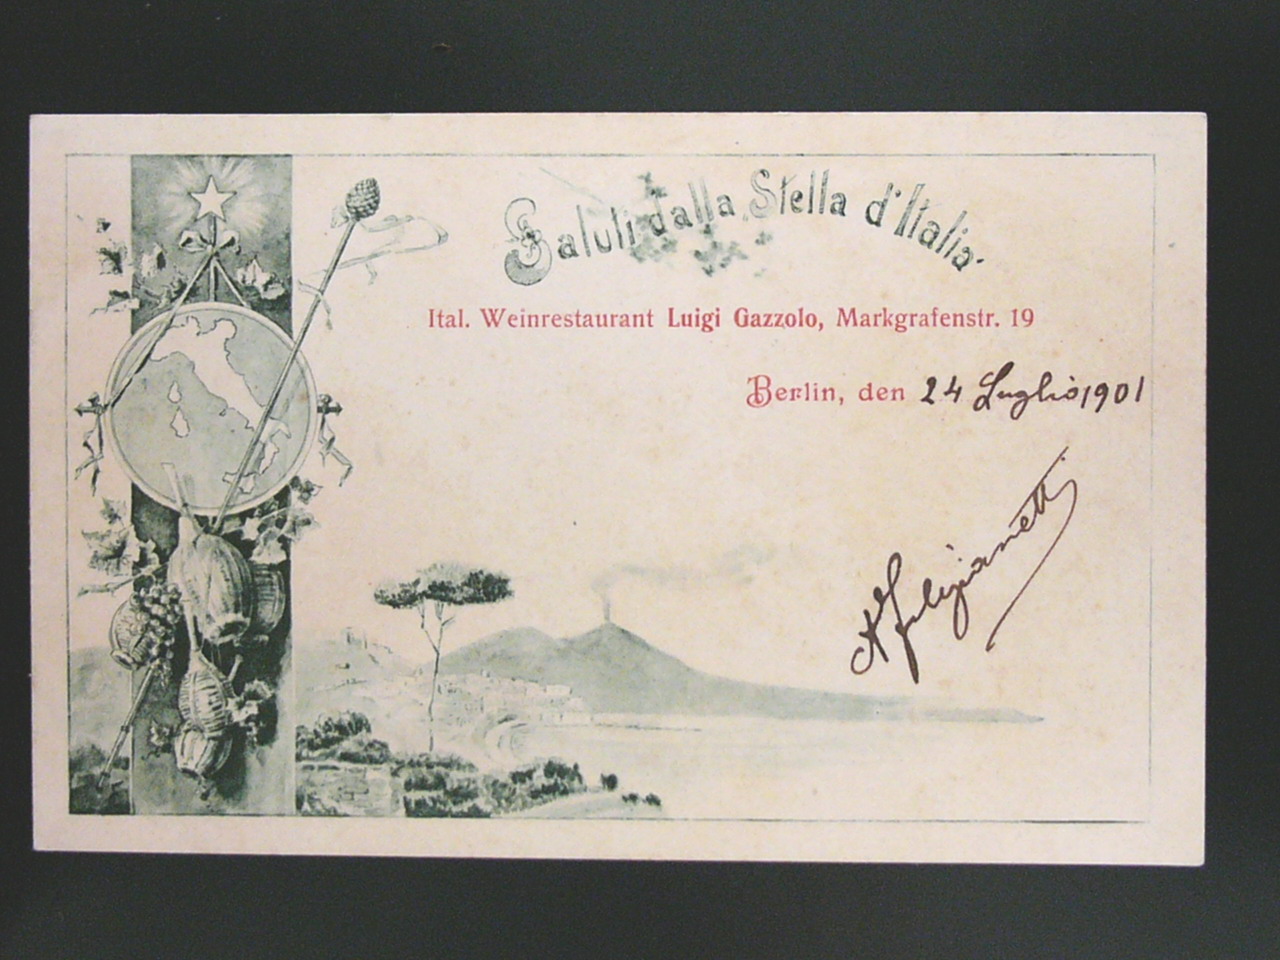 Saluti dalla Stella d'Italia
Ital. Weinrestaurant Luigi Gazzolo, Markgrafenstr. 19
Berlin, den 24 Luglio 1901